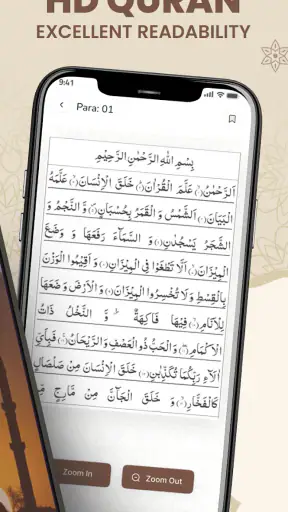 HD QURAN
EXCELLENT READABILITY
9:41
Para: 01
بِسْمِ اللهِ الرَّحْمٰنِ الرَّحِيْمِ
اَلرَّحْمٰنُ ۙ(۱) عَلَّمَ الْقُرْاٰنَ ؕ(۲) خَلَقَ الْاِنْسَانَ ۙ(۳) عَلَّمَهُ
الْبَيَانَ (۴) اَلشَّمْسُ وَ الْقَمَرُ بِحُسْبَانٍ (۵) وَّ النَّجْمُ وَ
الشَّجَرُ يَسْجُدٰنِ (۶) وَ السَّمَآءَ رَفَعَهَا وَ وَضَعَ
الْمِيْزَانَ ۙ(۷) اَلَّا تَطْغَوْا فِی الْمِيْزَانِ (۸) وَ اَقِيْمُوا الْوَزْنَ
بِالْقِسْطِ وَ لَا تُخْسِرُوا الْمِيْزَانَ (۹) وَ الْاَرْضَ وَ ضَعَهَا
لِلْاَنَامِ ۙ(۱۰) فِيْهَا فَاكِهَةٌ وَّ النَّخْلُ ذَاتُ
الْاَكْمَامِ (۱۱) وَ الْحَبُّ ذُو الْعَصْفِ وَ الرَّيْحَانُ (۱۲) فَبِاَیِّ
اٰلَآءِ رَبِّكُمَا تُكَذِّبٰنِ (۱۳) خَلَقَ الْاِنْسَانَ مِنْ صَلْصَالٍ
كَالْفَخَّارِ ۙ(۱۴) وَ خَلَقَ الْجَآنَّ مِنْ مَّارِجٍ مِّنْ
Zoom In
Zoom Out